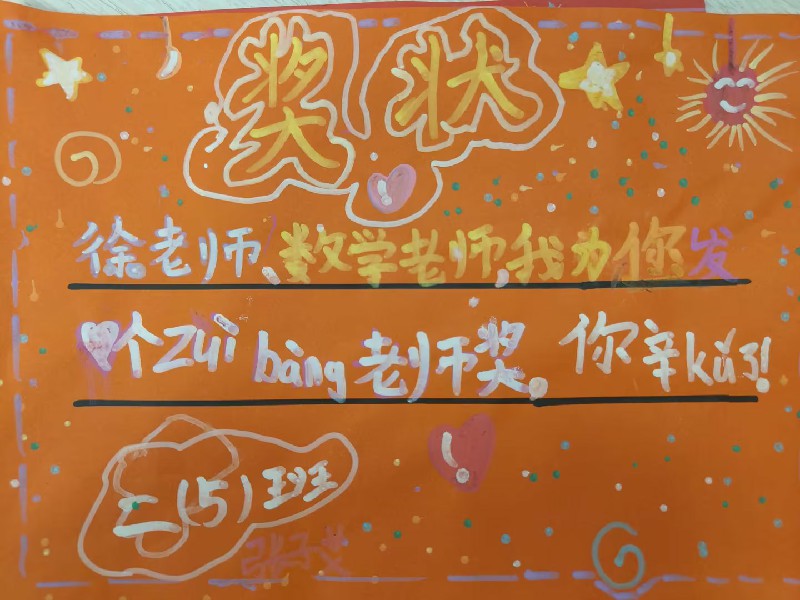 奖状
徐老师,数学老师,我为你发
个zuì bàng老师奖。你辛kǔ了!
二(5)班